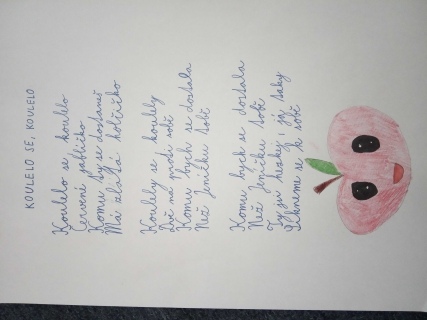 KOULELO SE, KOULELO
Koulelo se koulelo
Červené jablíčko
Komu ty se dostaneš
Má zlatá holčičko
Koulely se koulely
Dvě na proti sobě
Komu bych se dostala
Než Jeníčku tobě
Komu bych se dostala
Než Jeníčku tobě
Ty jsi hezký i já taky